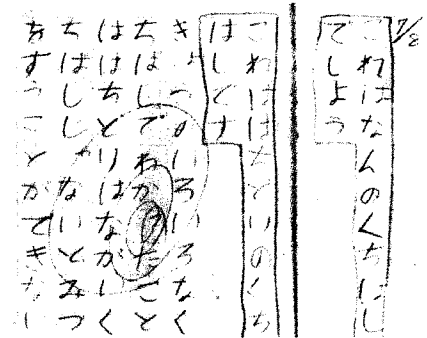 7/8
これはなんのくちにし
でしょう
これははちどりのくち
はしです
のいろいろなく
ちはしでわかったこと
ははちとりはながいく
ちはししゃないとみつ
をすうことができない